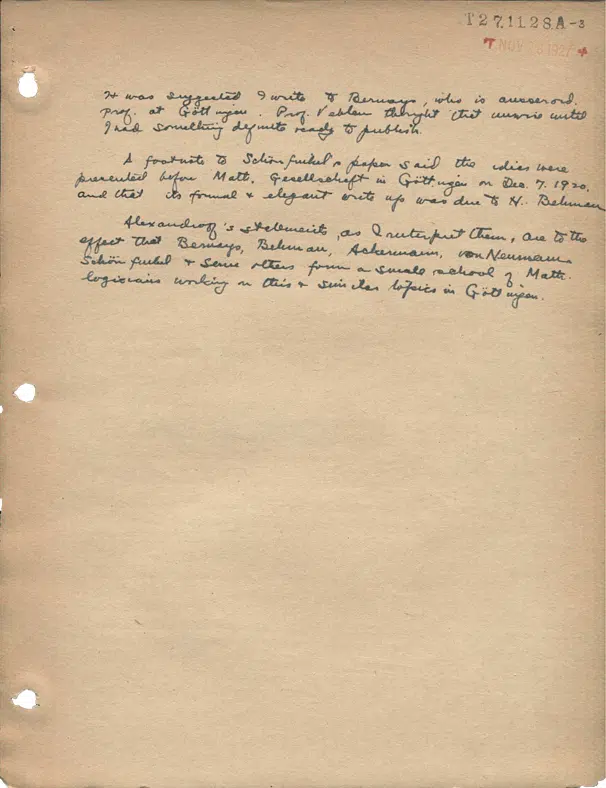 T271128A-3
T NOV 28 192
It was suggested I write to Bernays, who is ausserord.
prof. at Göttingen. Prof. Veblen thought that unwise until
I had something definite ready to publish.
A footnote to Schönfinkel's paper said the ideas were
presented before Math. Gesellschaft in Göttingen on Dec. 7, 1920,
and that its formal & elegant write up was due to H. Behman
Alexandroff's statements, as I interpret them, are to the
effect that Bernays, Behman, Ackermann, von Neumann,
Schönfinkel & some others form a small school of Math.
logicians working on this & similar topics in Göttingen.